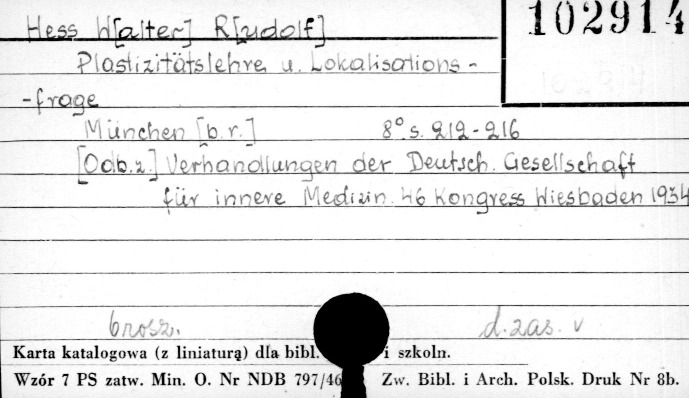 102914
Hess W[alter] R[udolf]
Plastizitätslehre u. Lokalisations-
-frage
München [b.r.] 8° s. 212-216
[Odb.z.] Verhandlungen der Deutsch. Gesellschaft
für innere Medizin. 46 Kongress Wiesbaden 1934
brosz. d. zas. v
Karta katalogowa (z liniaturą) dla bibl. i szkoln.
Wzór 7 PS zatw. Min. O. Nr NDB 797/46 Zw. Bibl. i Arch. Polsk. Druk Nr 8b.